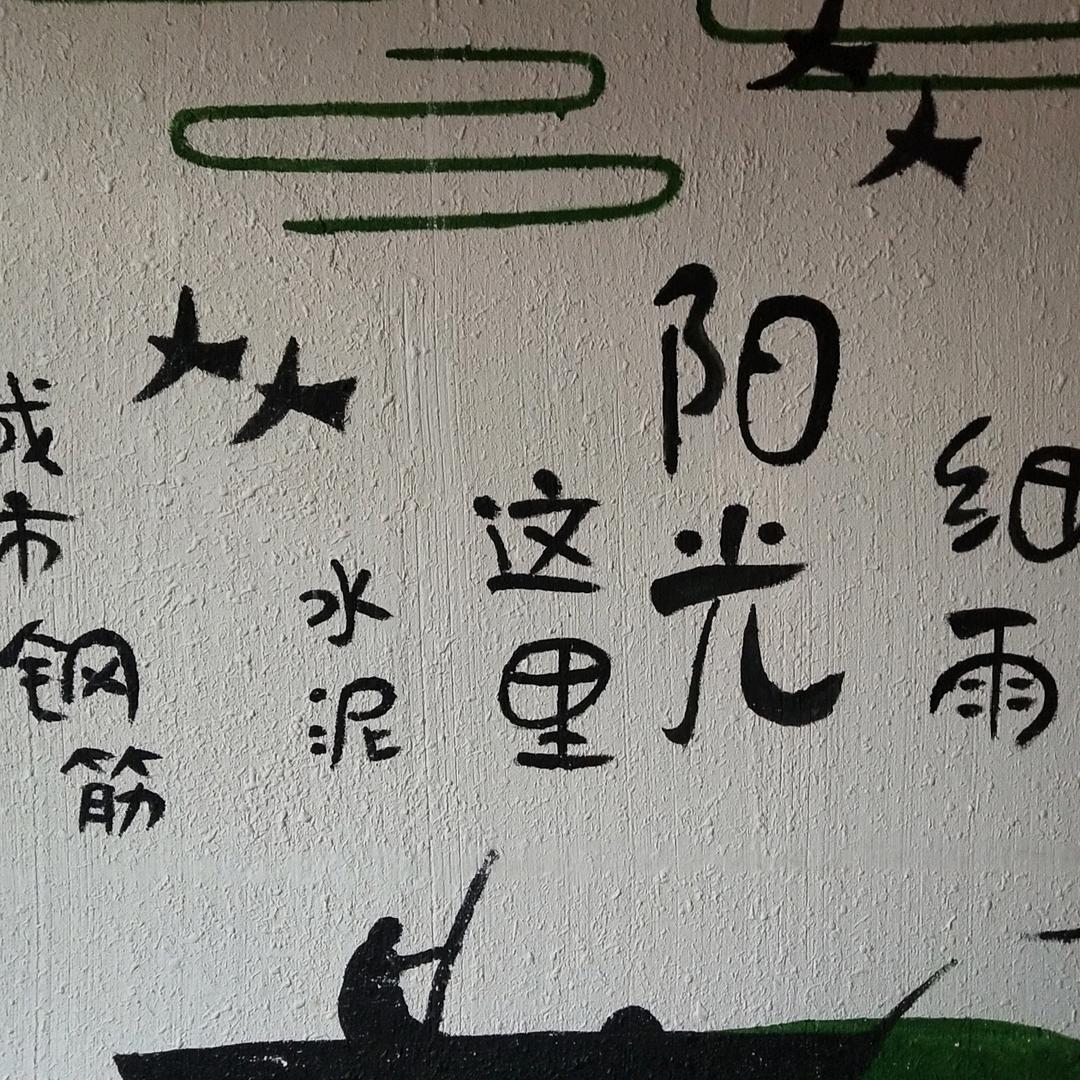 城市
钢筋
水泥
这里
阳光
细雨